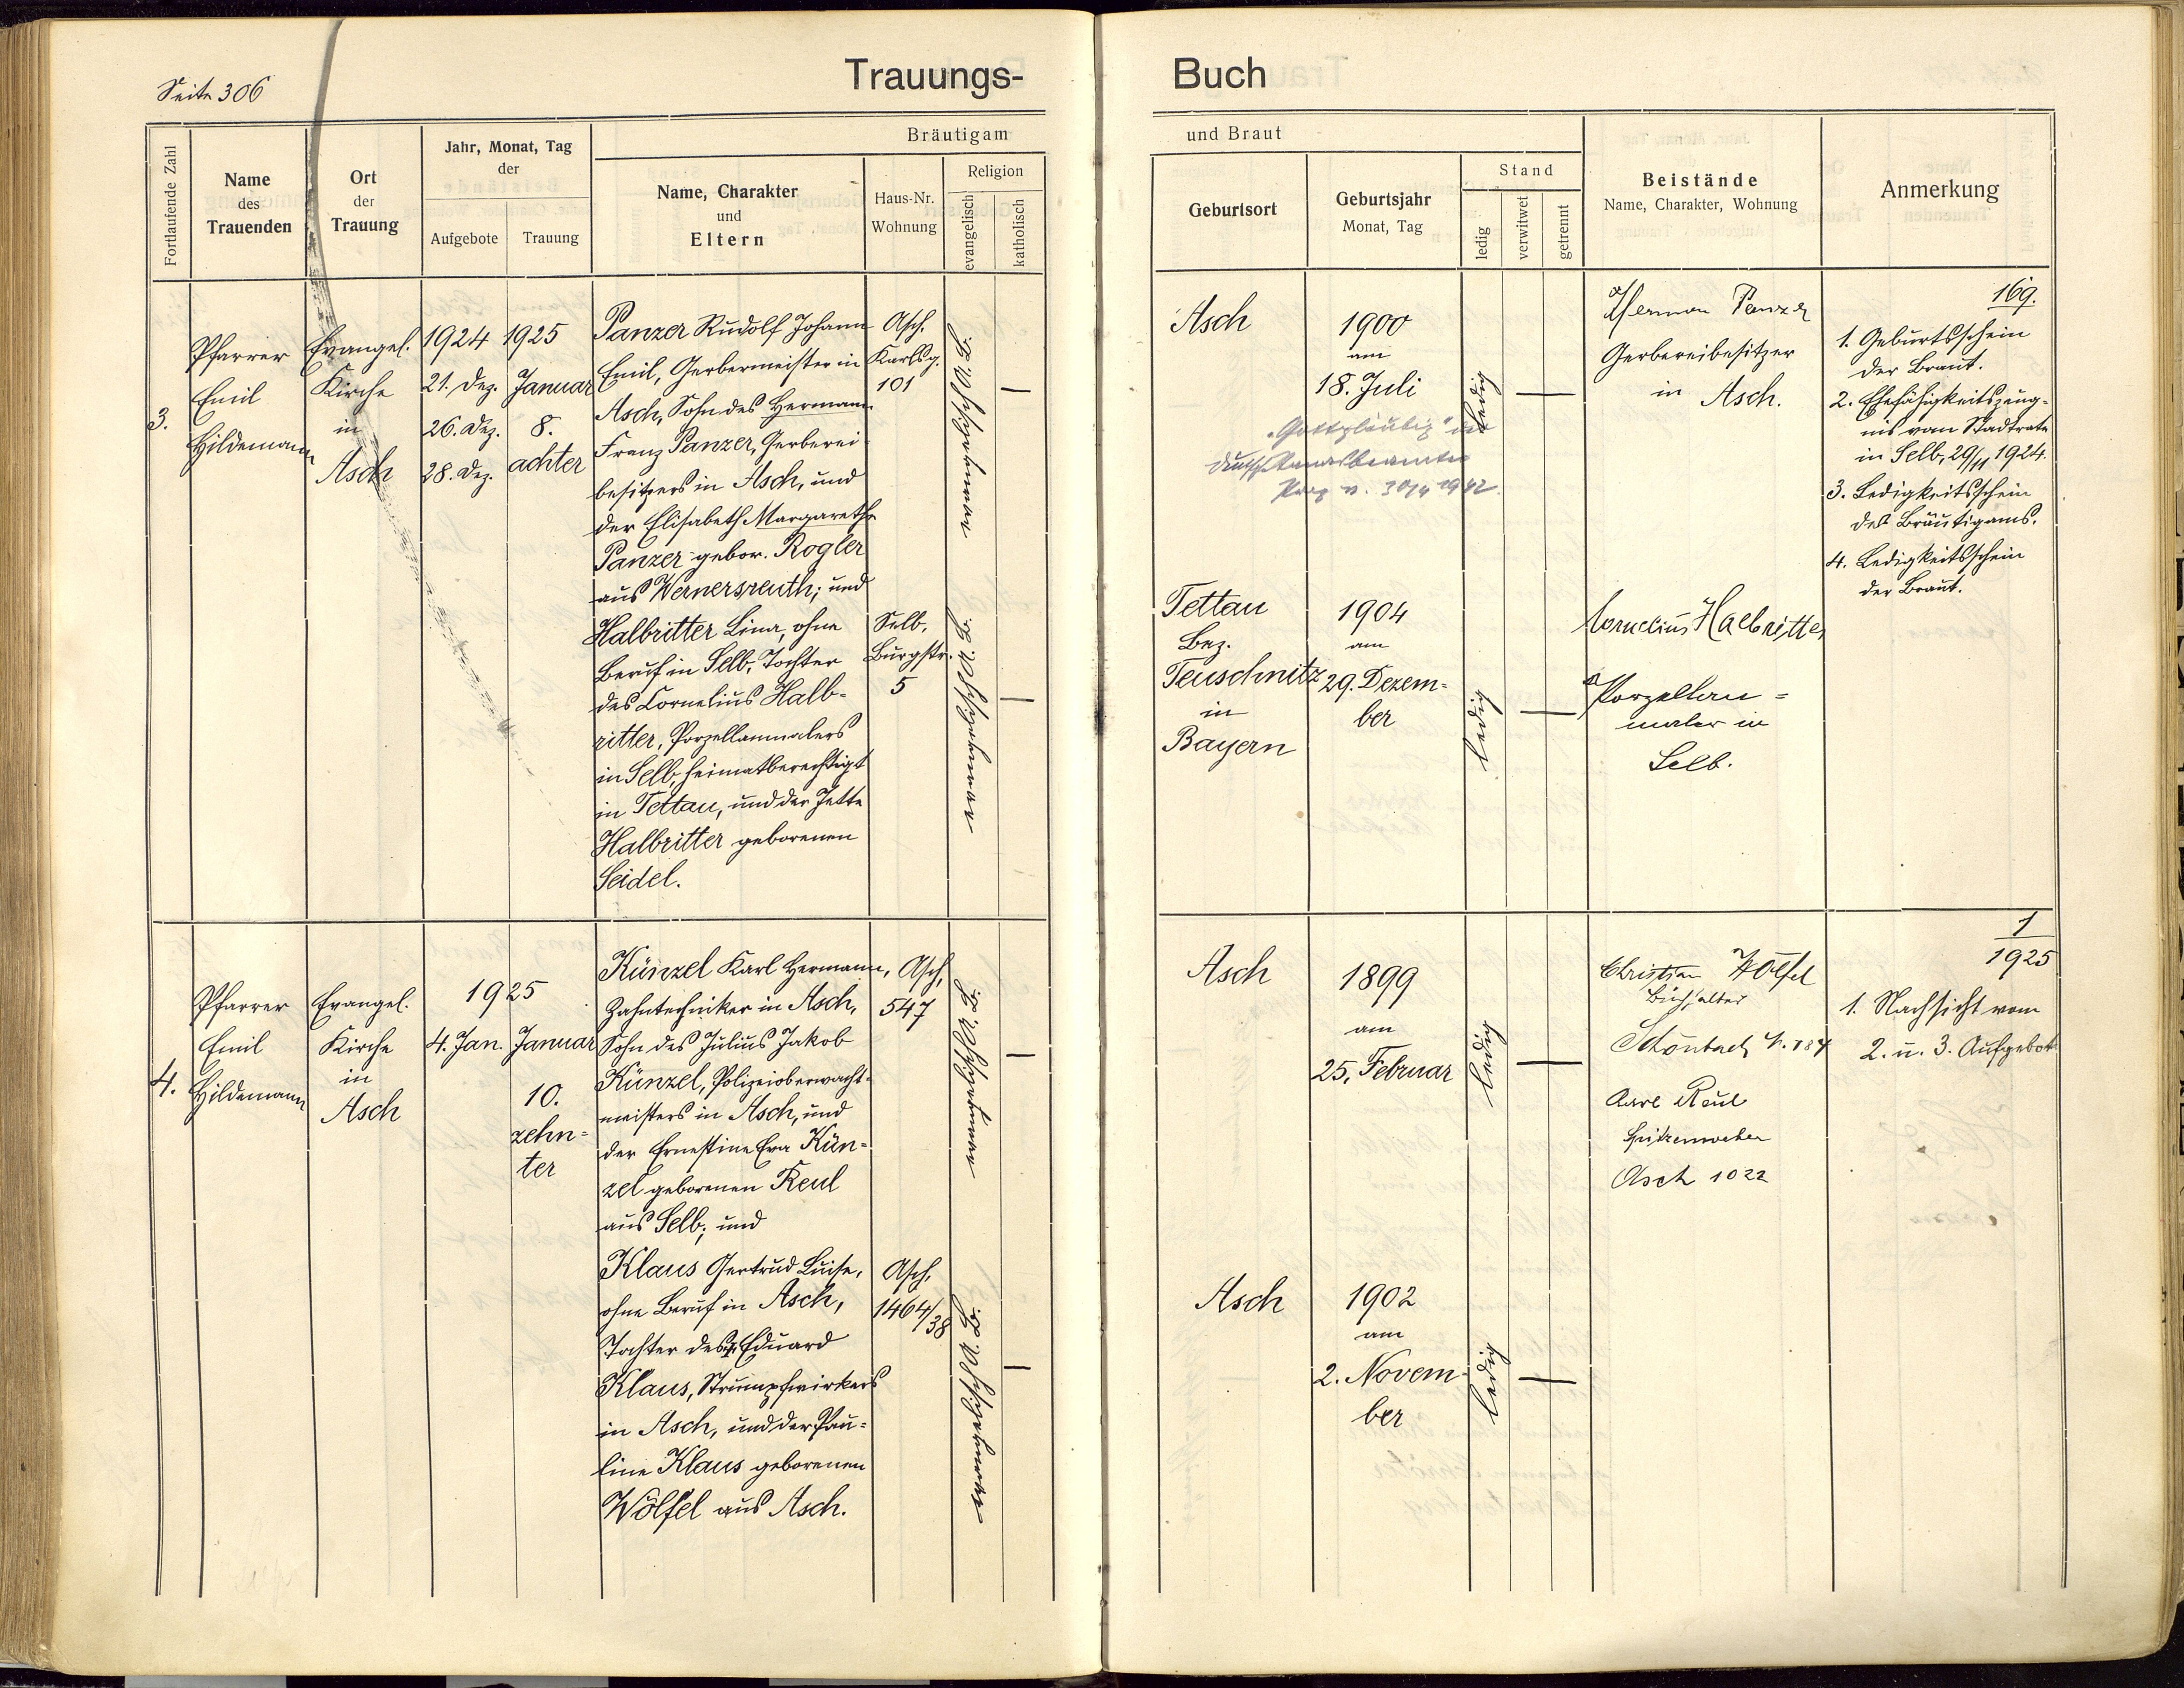 Seite 306
Trauungs-
Buch
Fortlaufende Zahl
Name
des
Trauenden
Ort
der
Trauung
Jahr, Monat, Tag
der
Aufgebote
Trauung
Bräutigam
Name, Charakter
und
Eltern
Haus-Nr.
Wohnung
Religion
evangelisch
katholisch
und Braut
Geburtsort
Geburtsjahr
Monat, Tag
Stand
ledig
verwitwet
getrennt
Beistände
Name, Charakter, Wohnung
Anmerkung
3.
Pfarrer
Emil
Hildemann
Evangel.
Kirche
in
Asch
1924
21. Dez.
26. Dez.
28. Dez.
1925
Januar
8.
achter
Panzer Rudolf Johann
Emil, Gerbermeister in
Asch, Sohn des Hermann
Franz Panzer, Gerberei-
besitzers in Asch, und
der Elisabeth Margarethe
Panzer gebor. Rogler
aus Wernersreuth; und
Asch.
Karlsg.
101
—
Halbritter Lina, ohne
Beruf in Selb, Tochter
des Cornelius Halb-
ritter, Porzellanmalers
in Selb, heimatberechtigt
in Tettau, und der Jette
Halbritter geborenen
Seidel.
Selb,
Burgstr.
5
—
Asch
1900
am
18. Juli
ledig
—
"Gottgläubig"
30/4 1942
Herman Panzer
Gerbereibesitzer
in Asch.
169.
1. Geburtsschein
der Braut.
2. Ehefähigkeitszeug-
nis vom Stadtrate
in Selb, 29/11 1924.
3. Ledigkeitsschein
des Bräutigams.
4. Ledigkeitsschein
der Braut.
Tettau
Bez.
Teuschnitz
in
Bayern
1904
am
29. Dezem-
ber
ledig
—
Cornelius Halbritter
Porzellan-
maler in
Selb.
4.
Pfarrer
Emil
Hildemann
Evangel.
Kirche
in
Asch
1925
4. Jan.
Januar
10.
zehn-
ter
Künzel Karl Hermann,
Zahntechniker in Asch,
Sohn des Julius Jakob
Künzel, Polizeioberwacht-
meisters in Asch, und
der Ernestine Eva Kün-
zel geborenen Reul
aus Selb; und
Asch,
547
—
Klaus Gertrud Luise,
ohne Beruf in Asch,
Tochter des Eduard
Klaus, Strumpfwirkers
in Asch, und der Pau-
line Klaus geborenen
Wölfel aus Asch.
Asch,
1464/38
—
Asch
1899
am
25. Februar
ledig
—
Christian Wölfel
Buchhalter
Schönbach N. 184
Karl Reul
Spitzenweber
Asch 1022
1
1925
1. Nachsicht vom
2. u. 3. Aufgebot
Asch
1902
am
2. Novem-
ber
ledig
—